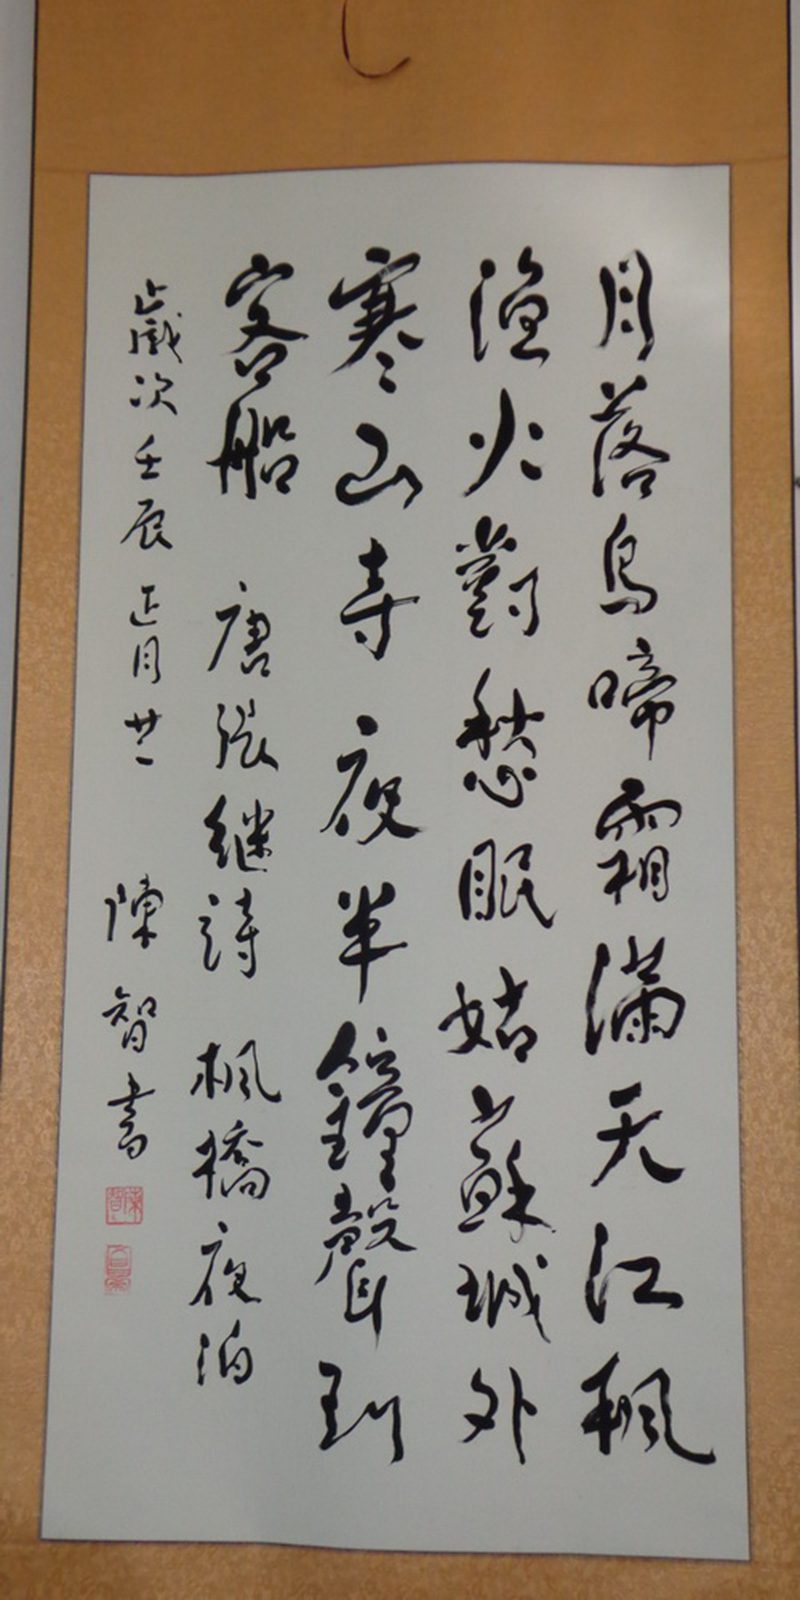 月落烏啼霜滿天江楓
漁火對愁眠姑蘇城外
寒山寺夜半鐘聲到
客船 唐張継詩 楓橋夜泊
歲次壬辰正月廿二 陳智書
陳智